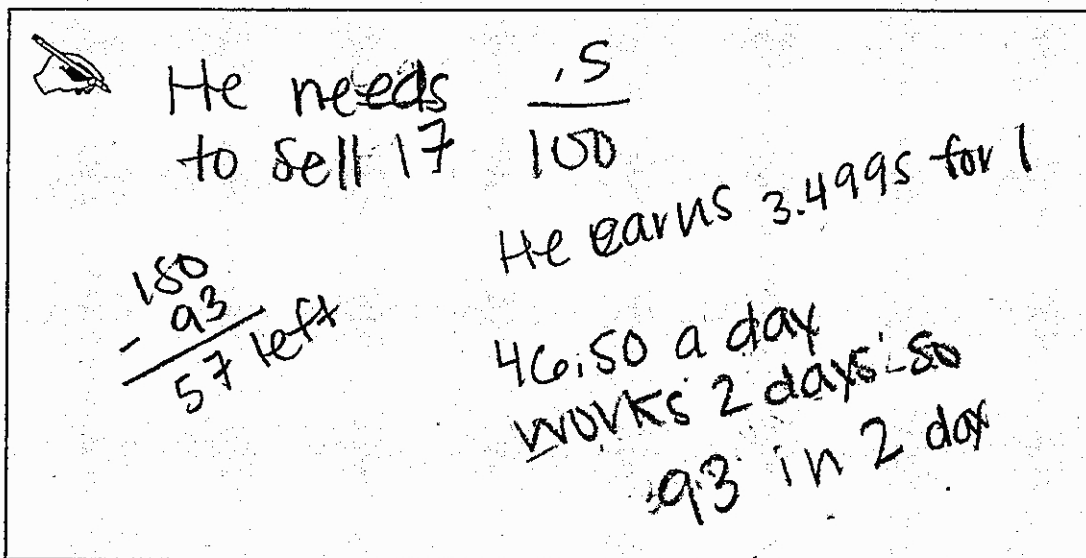 He needs
to sell 17
.5
100
He earns 3.4995 for 1
150
- 93
57 left
46.50 a day
works 2 days so
93 in 2 day